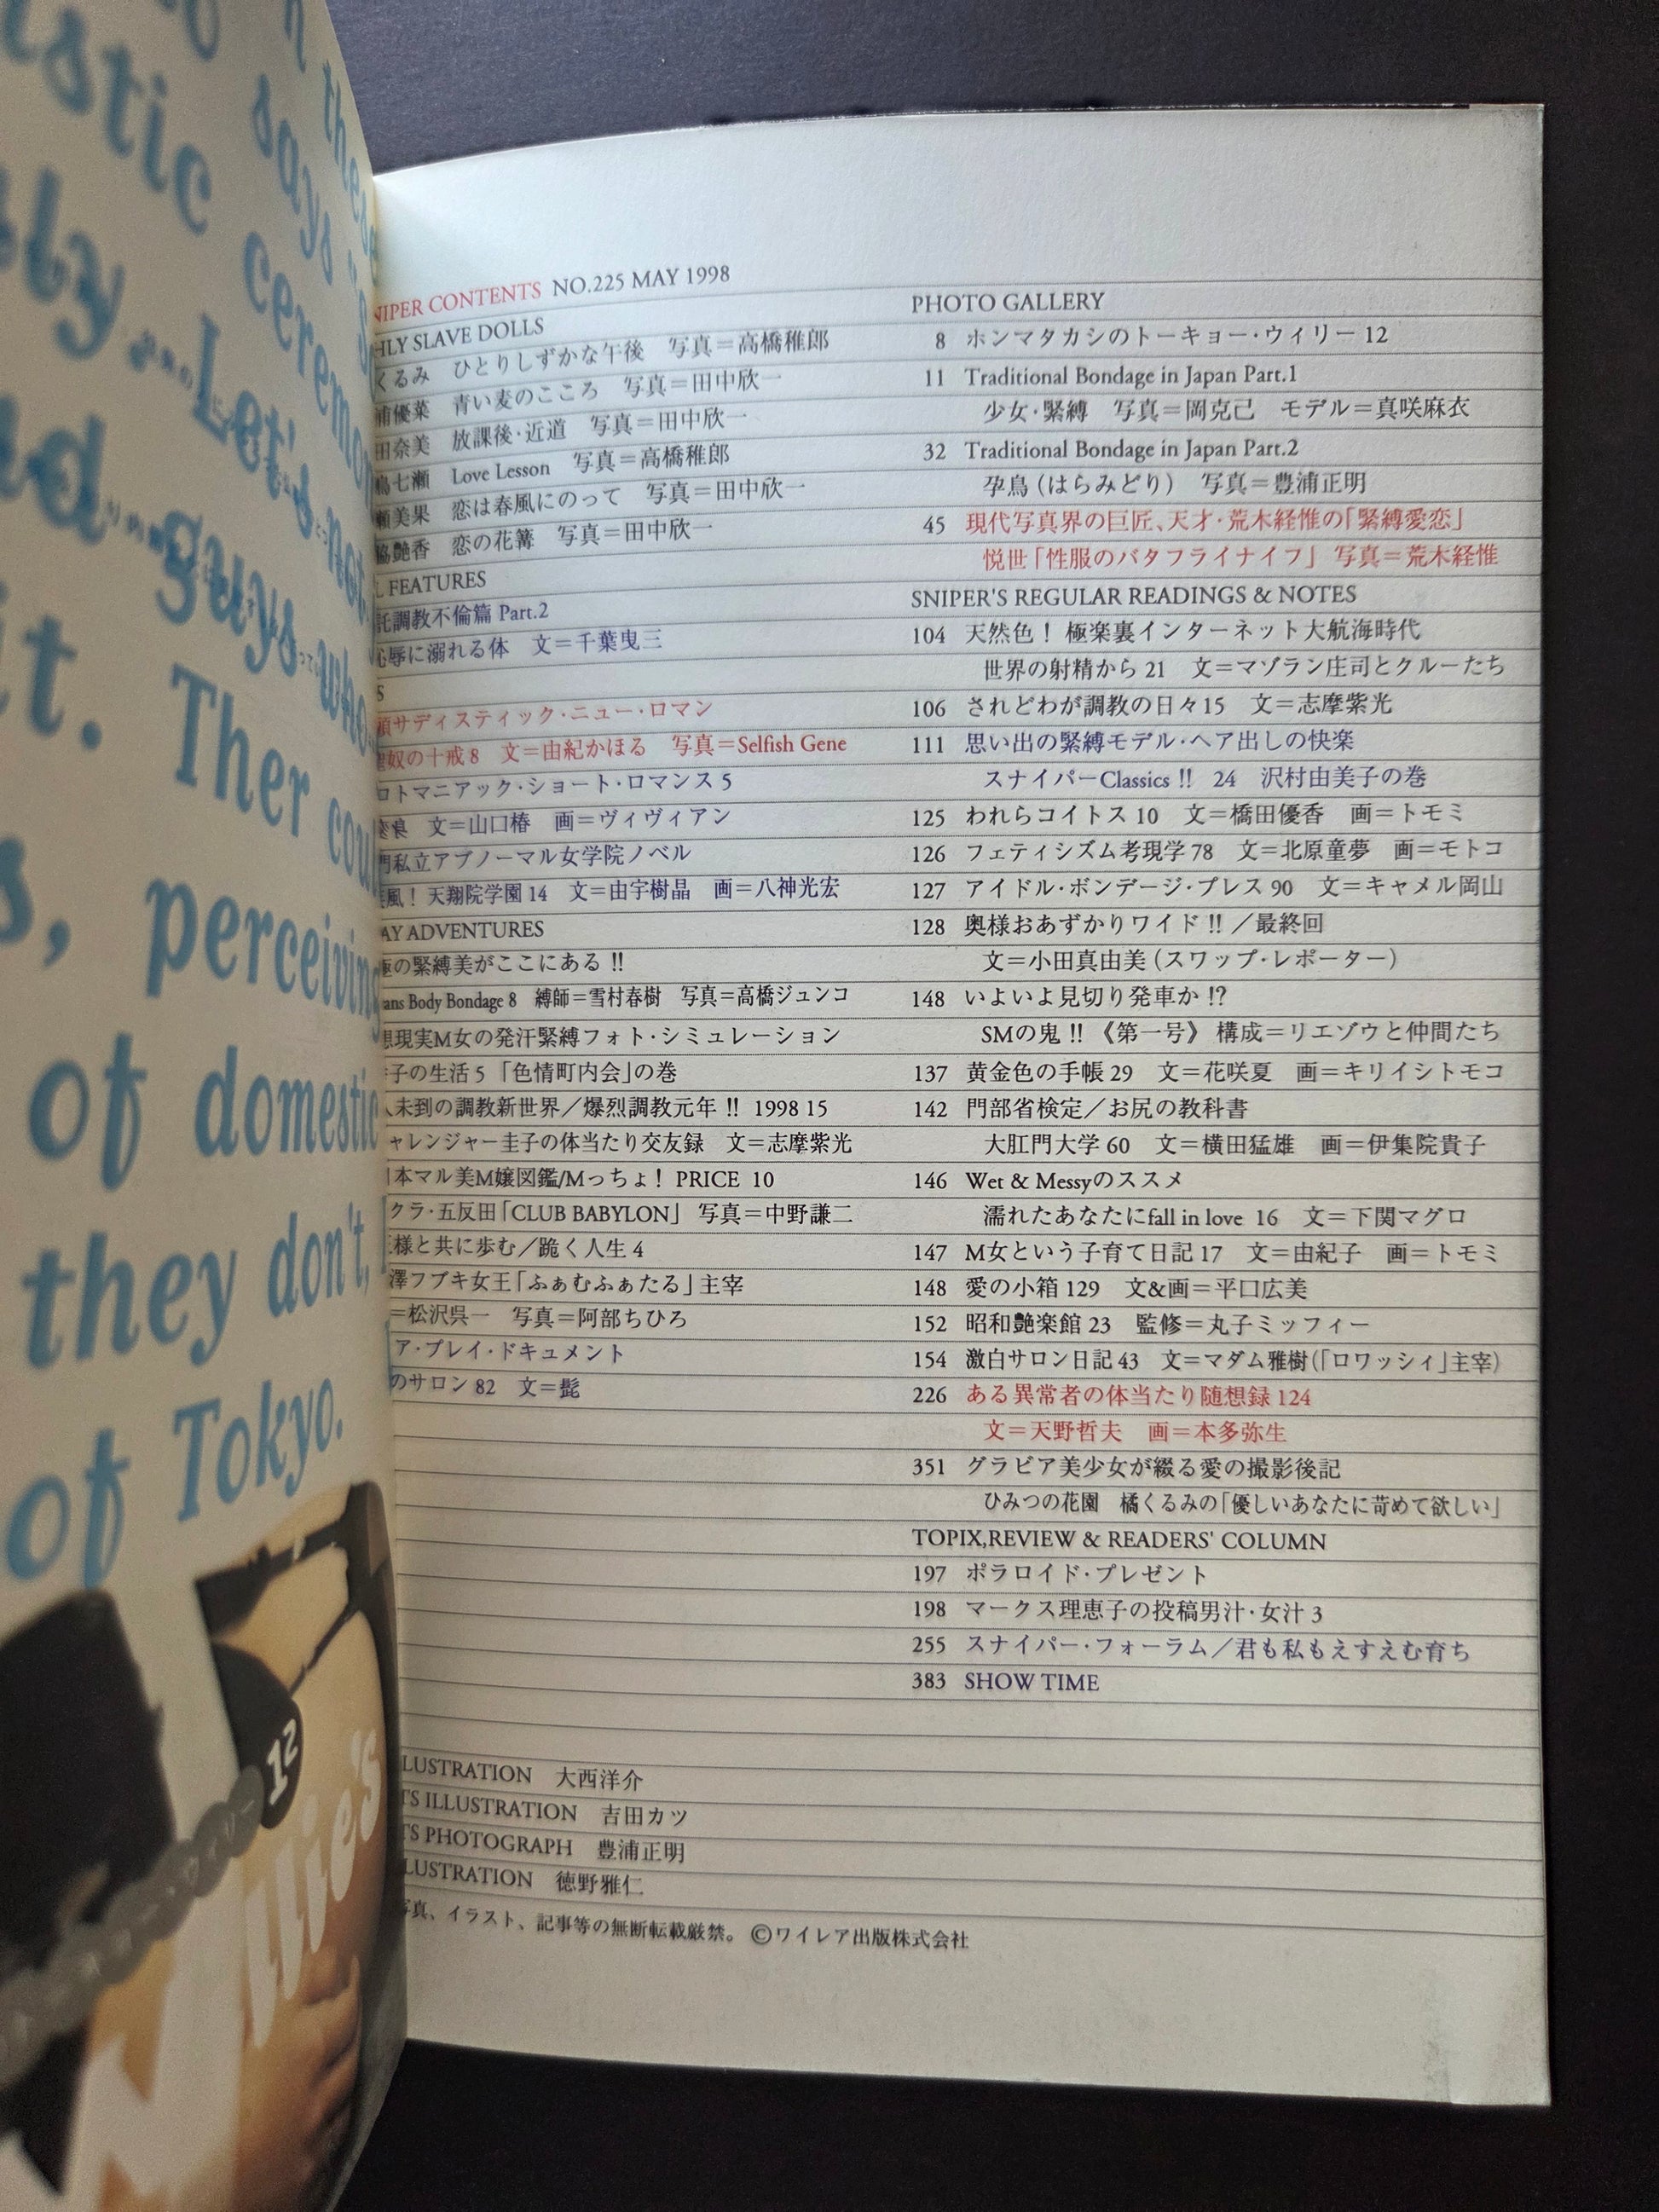 n these
says "S
istic ceremon
bly Let's not
nd guys who
it. Ther cou
s, perceiving
of domestic
they don't,
of Tokyo.
12
NIPER CONTENTS NO.225 MAY 1998
HLY SLAVE DOLLS
くるみ ひとりしずかな午後 写真=高橋稚郎
浦優菜 青い麦のこころ 写真=田中欣一
田奈美 放課後・近道 写真=田中欣一
島七瀬 Love Lesson 写真=高橋稚郎
瀬美果 恋は春風にのって 写真=田中欣一
艶香 恋の花篝 写真=田中欣一
L FEATURES
託調教不倫篇 Part.2
恥辱に溺れる体 文=千葉曳三
S
サディスティック・ニュー・ロマン
奴の十戒 8 文=由紀かほる 写真=Selfish Gene
ロトマニアック・ショート・ロマンス 5
狼 文=山口椿 画=ヴィヴィアン
門私立アブノーマル女学院ノベル
風！ 天翔院学園 14 文=由宇樹晶 画=八神光宏
AY ADVENTURES
極の緊縛美がここにある !!
ans Body Bondage 8 縛師=雪村春樹 写真=高橋ジュンコ
想現実M女の発汗緊縛フォト・シミュレーション
子の生活 5 「色情町内会」の巻
人未到の調教新世界／爆烈調教元年 !! 1998 15
ャレンジャー圭子の体当たり交友録 文=志摩紫光
日本マル美M嬢図鑑/Mっちょ！ PRICE 10
クラ・五反田「CLUB BABYLON」 写真=中野謙二
様と共に歩む／跪く人生 4
澤フブキ女王「ふぁむふぁたる」主宰
=松沢呉一 写真=阿部ちひろ
ア・プレイ・ドキュメント
のサロン 82 文=髭
LUSTRATION 大西洋介
TS ILLUSTRATION 吉田カツ
TS PHOTOGRAPH 豊浦正明
LUSTRATION 徳野雅仁
写真、イラスト、記事等の無断転載厳禁。 ©ワイレア出版株式会社
PHOTO GALLERY
8 ホンマタカシのトーキョー・ウィリー 12
11 Traditional Bondage in Japan Part.1
少女・緊縛 写真=岡克己 モデル=真咲麻衣
32 Traditional Bondage in Japan Part.2
孕鳥（はらみどり） 写真=豊浦正明
45 現代写真界の巨匠、天才・荒木経惟の「緊縛愛恋」
悦世「性服のバタフライナイフ」 写真=荒木経惟
SNIPER'S REGULAR READINGS & NOTES
104 天然色！ 極楽裏インターネット大航海時代
世界の射精から 21 文=マゾラン庄司とクルーたち
106 されどわが調教の日々 15 文=志摩紫光
111 思い出の緊縛モデル・ヘア出しの快楽
スナイパーClassics !! 24 沢村由美子の巻
125 われらコイトス 10 文=橋田優香 画=トモミ
126 フェティシズム考現学 78 文=北原童夢 画=モトコ
127 アイドル・ボンデージ・プレス 90 文=キャメル岡山
128 奥様おあずかりワイド !! ／最終回
文=小田真由美（スワップ・レポーター）
148 いよいよ見切り発車か !?
SMの鬼 !! 《第一号》 構成=リエゾウと仲間たち
137 黄金色の手帳 29 文=花咲夏 画=キリイシトモコ
142 門部省検定／お尻の教科書
大肛門大学 60 文=横田猛雄 画=伊集院貴子
146 Wet & Messyのススメ
濡れたあなたにfall in love 16 文=下関マグロ
147 M女という子育て日記 17 文=由紀子 画=トモミ
148 愛の小箱 129 文&画=平口広美
152 昭和艶楽館 23 監修=丸子ミッフィー
154 激白サロン日記 43 文=マダム雅樹（「ロワッシィ」主宰）
226 ある異常者の体当たり随想録 124
文=天野哲夫 画=本多弥生
351 グラビア美少女が綴る愛の撮影後記
ひみつの花園 橘くるみの「優しいあなたに苛めて欲しい」
TOPIX,REVIEW & READERS' COLUMN
197 ポラロイド・プレゼント
198 マークス理恵子の投稿男汁・女汁 3
255 スナイパー・フォーラム／君も私もえすえむ育ち
383 SHOW TIME